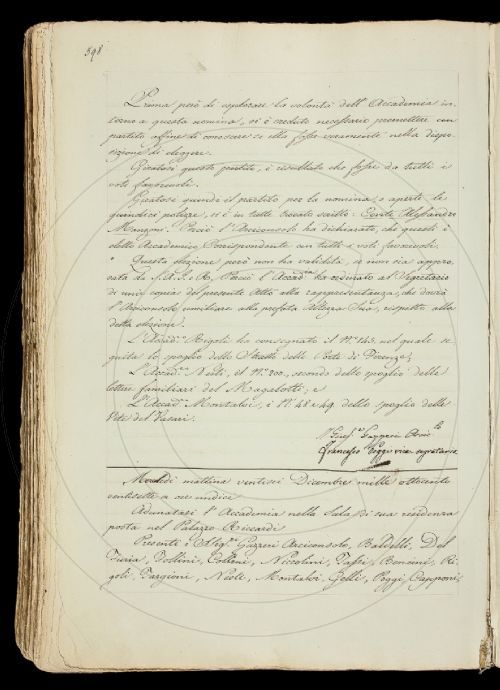 598
Prima però di esplorare la volontà dell'Accademia in-
torno a questa nomina, si è creduto necessario premettere un
partito affine di conoscere se ella fosse veramente nella dispo-
sizione di eleggere.
Giratosi questo partito, è risultato che fosse da tutti i
voti favorevoli.
Giratosi quindi il partito per la nomina, e aperte le
quindici polizze, si è in tutte trovato scritto: Conte Alessandro
Manzoni. Perciò l'Arciconsolo ha dichiarato, che questi è
eletto Accademico Corrispondente con tutti i voti favorevoli.
Questa elezione però non ha validità, se non sia appro-
vata da S.A.I. e R. Perciò l'Accad.ª ha ordinato al Segretario
di unir copia del presente Atto alla rappresentanza, che dovrà
l'Arciconsolo umiliare alla prefata Altezza Sua, rispetto alla
detta elezione.
L'Accad.co Rigoli ha consegnato il N.° 143. nel quale se-
guita lo spoglio delle Storie delle di Firenze;
L'Accad.co il N.° 200. secondo dello spoglio delle
lettere familiari del Magalotti; e
L'Accad.co Montalvi, i N.i 48 e 49. dello spoglio delle
Vite del Vasari.
Gius.e Arci.lo
Francesco Poggi vice segretario
mattina ventisei Dicembre mille ottocento
ventisette a ore undici
Adunatasi l'Accademia nella Sala di sua residenza
posta nel Palazzo Riccardi
Presenti i Sig.ri Arciconsolo, Baldelli, Del
Furia, Follini, Collini, Niccolini, Tassi, Bencini, Ri-
goli, Targioni, Montalvi, Gelli, Poggi, Capponi,